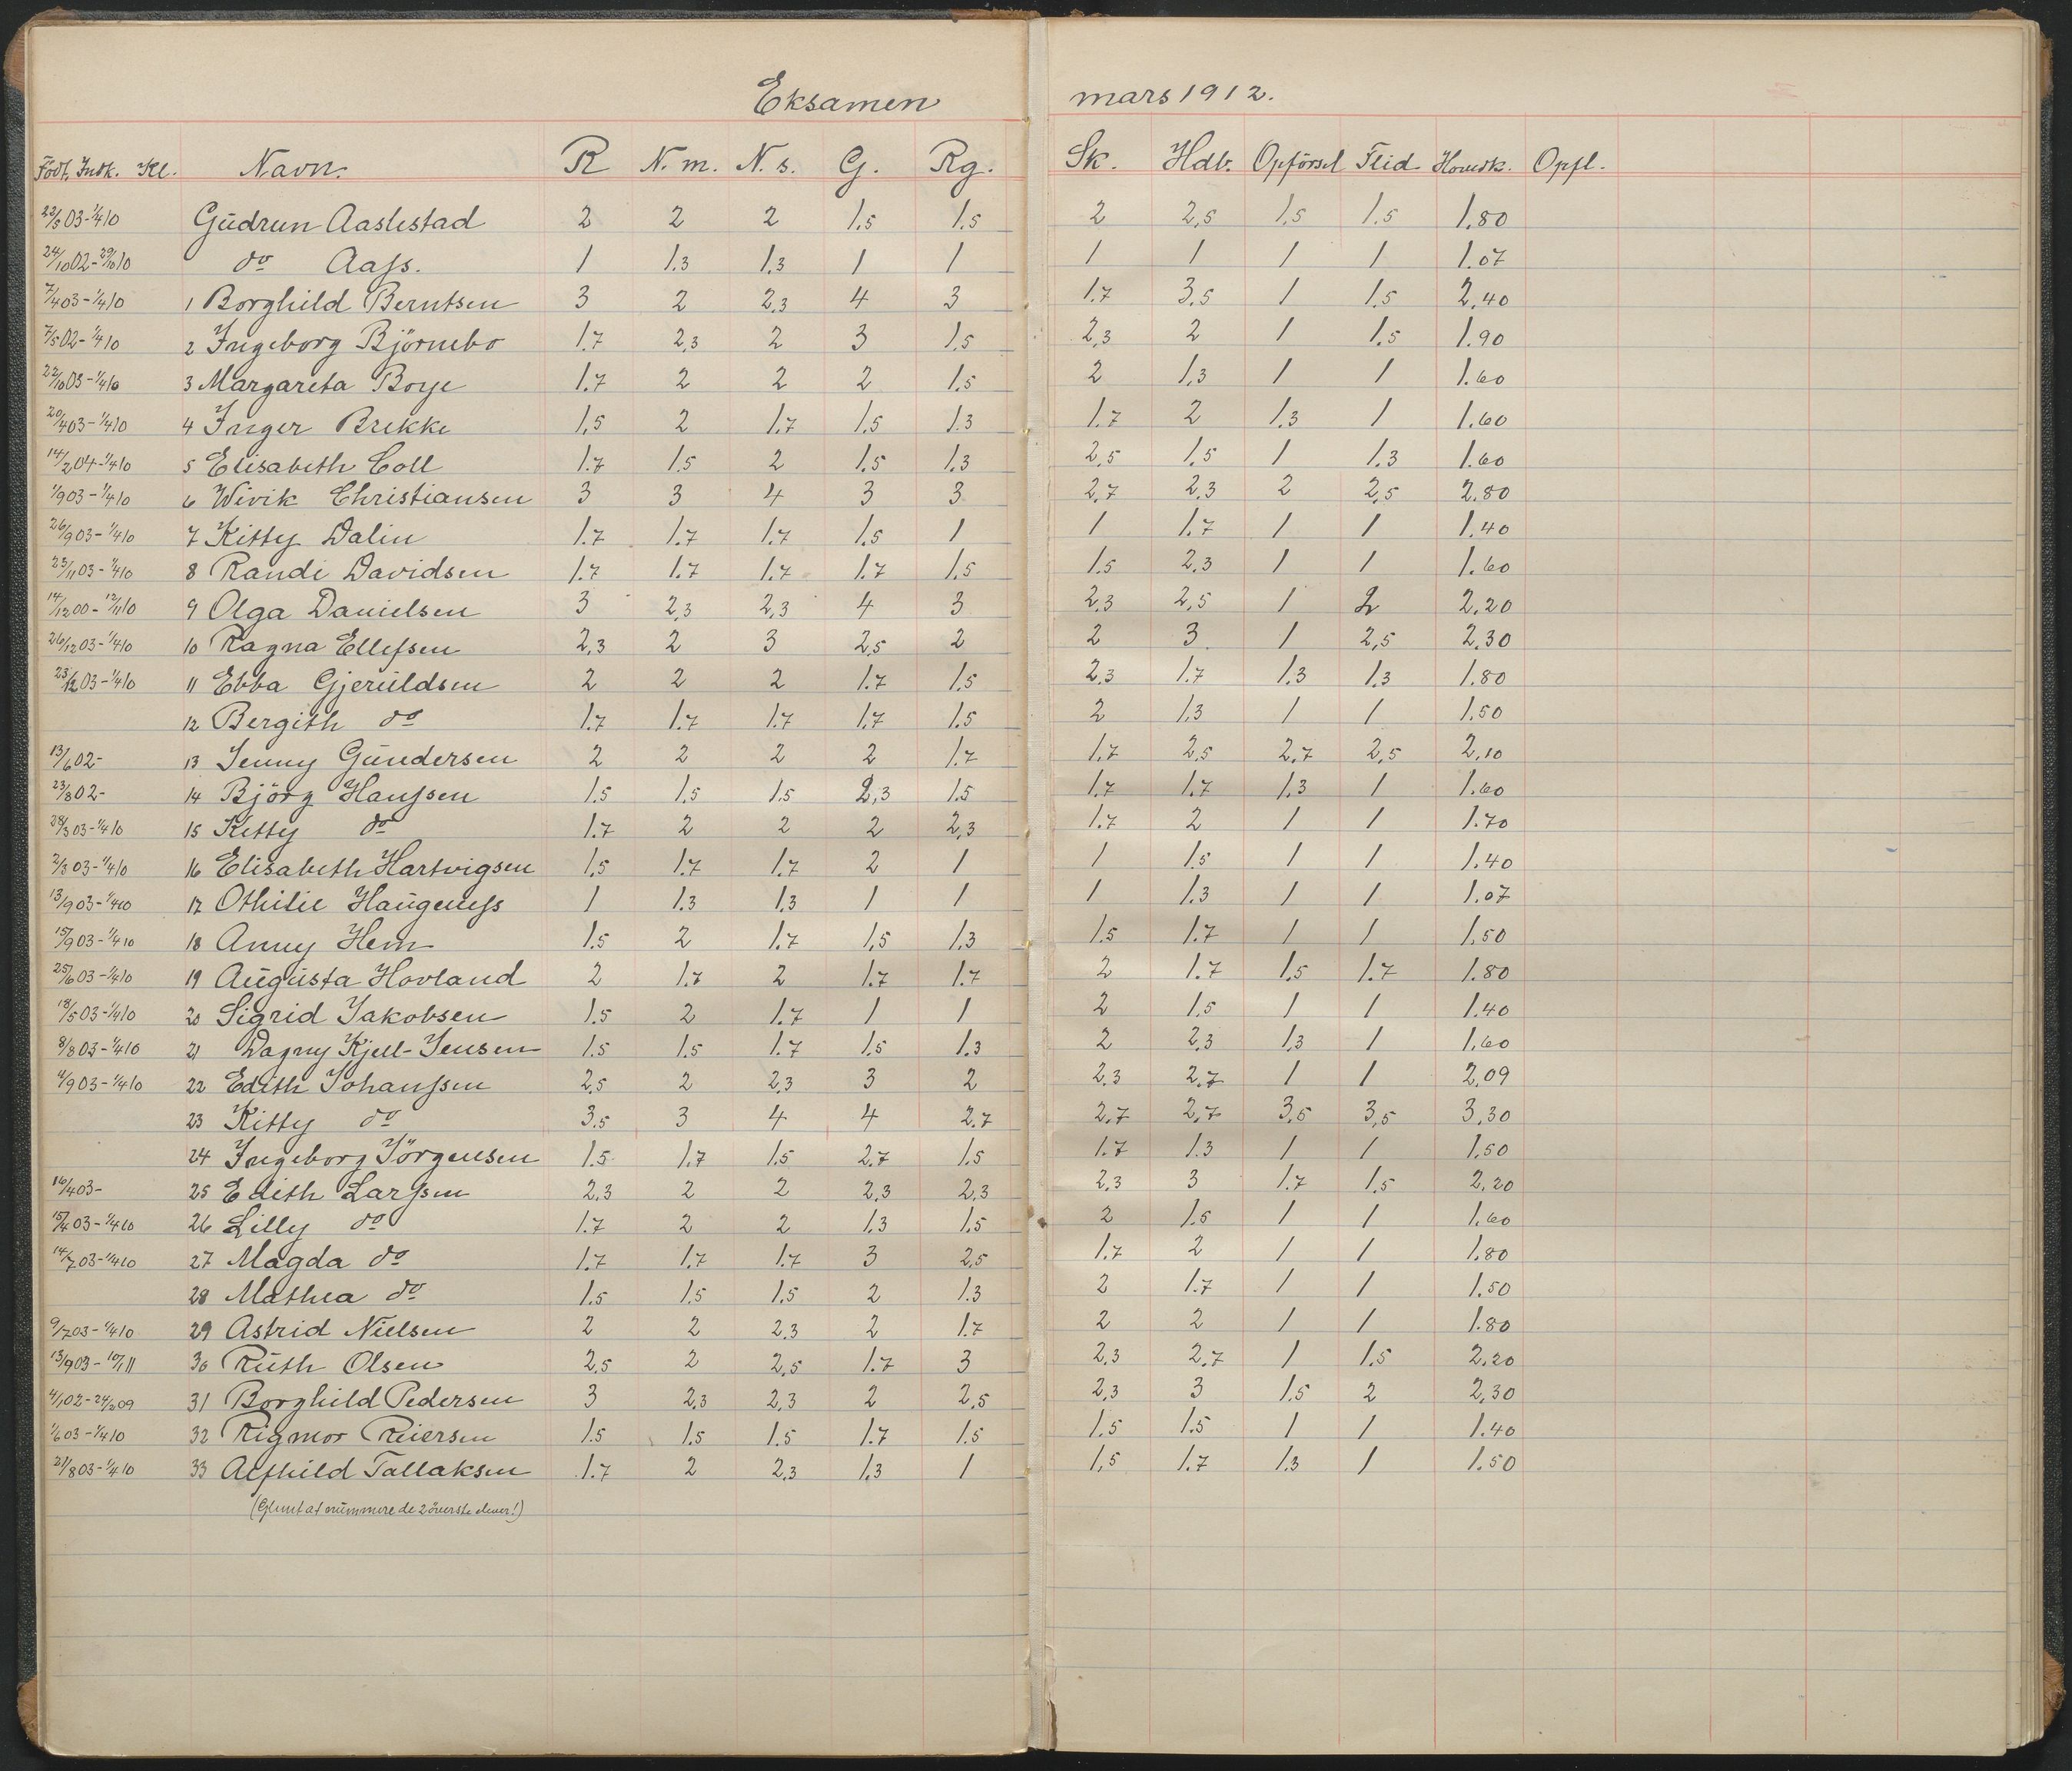 Eksamen mars 1912.
Födt. Indk. Kl. Navn. R N. m. N. s. G. Rg. Sk. Hdb. Opförsel Flid Hovedk. Opfl.
22/3 03-1/4 10 Gudrun Aaslestad 2 2 2 1.5 1.5 2 2,5 1,5 1.5 1.80
24/10 02-29/10 10 do Aass. 1 1.3 1.3 1 1 1 1 1 1 1.07
7/4 03-1/4 10 1 Borghild Berntsen 3 2 2,3 4 3 1.7 3,5 1 1.5 2,40
7/5 02-1/4 10 2 Ingeborg Björnebo 1.7 2,3 2 3 1.5 2,3 2 1 1.5 1.90
22/6 03-1/4 10 3 Margareta Borge 1.7 2 2 2 1.5 2 1,3 1 1 1.60
20/4 03-1/4 10 4 Inger Brekke 1,5 2 1.7 1.5 1.3 1.7 2 1.3 1 1.60
14/2 04-1/4 10 5 Elisabeth Coll 1.7 1.5 2 1.5 1.3 2,5 1.5 1 1.3 1.60
1/9 03-1/4 10 6 Wivik Christiansen 3 3 4 3 3 2,7 2,3 2 2,5 2,80
26/9 03-1/4 10 7 Kitty Dalin 1.7 1.7 1.7 1.5 1 1 1.7 1 1 1.40
23/11 03-1/4 10 8 Randi Davidsen 1.7 1.7 1.7 1.7 1.5 1.5 2.3 1 1 1.60
14/12 00-12/11 10 9 Olga Danielsen 3 2,3 2,3 4 3 2,3 2,5 1 2 2.20
26/12 03-1/4 10 10 Ragna Ellefsen 2,3 2 3 2,5 2 2 3 1 2,5 2,30
23/12 03-1/4 10 11 Ebba Gjeruldsen 2 2 2 1.7 1.5 2.3 1.7 1.3 1.3 1.80
12 Bergith do 1.7 1.7 1.7 1.7 1.5 2 1,3 1 1 1.50
13/6 02- 13 Jenny Gundersen 2 2 2 2 1.7 1.7 2,5 2,7 2,5 2,10
23/8 02- 14 Björg Hanssen 1.5 1.5 1.5 2,3 1.5 1.7 1.7 1.3 1 1.60
28/3 03-1/4 10 15 Kitty do 1.7 2 2 2 2,3 1.7 2 1 1 1.70
2/3 03-1/4 10 16 Elisabeth Hartvigsen 1,5 1.7 1.7 2 1 1 1.5 1 1 1.40
13/9 03-1/4 10 17 Othilie Haugeness 1 1.3 1.3 1 1 1 1.3 1 1 1.07
15/9 03-1/4 10 18 Anny Hem 1.5 2 1.7 1,5 1,3 1.5 1.7 1 1 1,50
25/6 03-1/4 10 19 Augusta Hovland 2 1.7 2 1.7 1.7 2 1.7 1.5 1.7 1.80
18/5 03-1/4 10 20 Sigrid Jakobsen 1.5 2 1.7 1 1 2 1.5 1 1 1.40
8/8 03-1/4 10 21 Dagny Kjell-Jensen 1.5 1.5 1.7 1.5 1.3 2 2,3 1,3 1 1.60
4/9 03-1/4 10 22 Edith Johanssen 2,5 2 2,3 3 2 2.3 2,7 1 1 2,09
23 Kitty do 3.5 3 4 4 2.7 2,7 2,7 3,5 3,5 3,30
24 Ingeborg Jörgensen 1.5 1,7 1.5 2.7 1.5 1.7 1.3 1 1 1.50
16/4 03- 25 Edith Larssen 2,3 2 2 2,3 2,3 2,3 3 1.7 1.5 2,20
15/4 03-1/4 10 26 Lilly do 1.7 2 2 1.3 1.5 2 1.5 1 1 1.60
14/7 03-1/4 10 27 Magda do 1.7 1.7 1.7 3 2,5 1.7 2 1 1 1.80
28 Mathea do 1.5 1.5 1.5 2 1.3 2 1.7 1 1 1.50
9/7 03-1/4 10 29 Astrid Nielsen 2 2 2.3 2 1.7 2 2 1 1 1.80
13/9 03-10/1 11 30 Ruth Olsen 2,5 2 2,5 1.7 3 2,3 2,7 1 1.5 2,20
4/1 02-24/3 09 31 Borghild Pedersen 3 2,3 2,3 2 2,5 2,3 3 1.5 2 2,30
1/6 03-1/4 10 32 Rigmor Reiersen 1.5 1,5 1.5 1.7 1.5 1.5 1.5 1 1 1.40
21/8 03-1/4 10 33 Alfhild Tallaksen 1.7 2 2,3 1,3 1 1,5 1.7 1.3 1 1.50
(Glemt at nummere de 2 överste elever!)